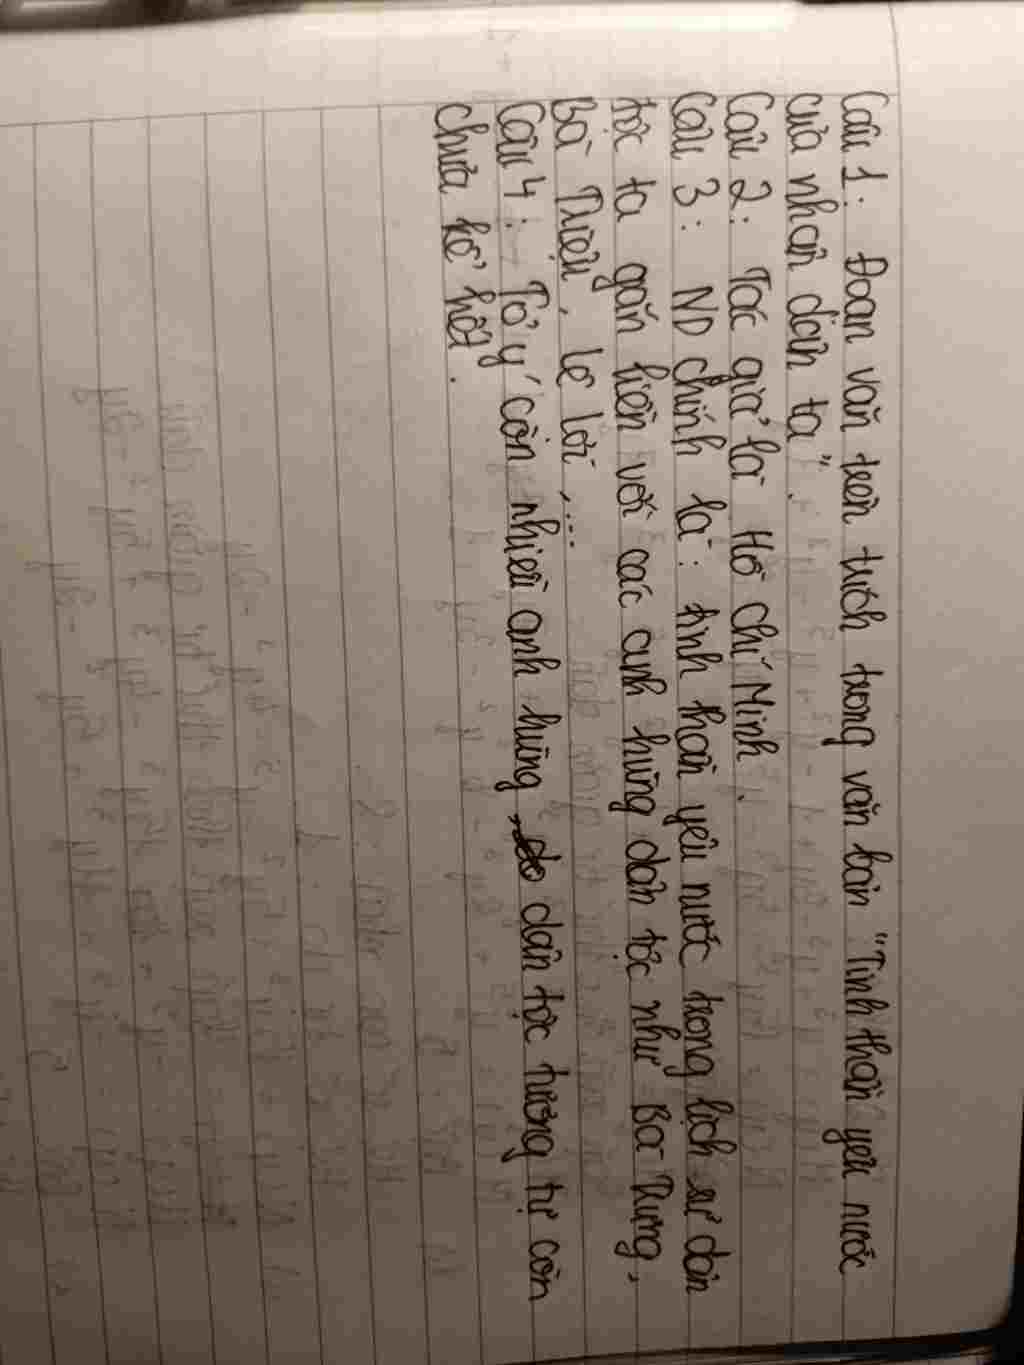 Câu 1: Đoạn văn trên trích trong văn bản "Tinh thần yêu nước
của nhân dân ta".
Câu 2: Tác giả là Hồ Chí Minh.
Câu 3: ND chính là: tinh thần yêu nước trong lịch sử dân
tộc ta gắn liền với các anh hùng dân tộc như Bà Trưng,
Bà Triệu, Lê Lợi,....
Câu 4: Tỏ ý còn nhiều anh hùng dân tộc tương tự còn
chưa kể hết.